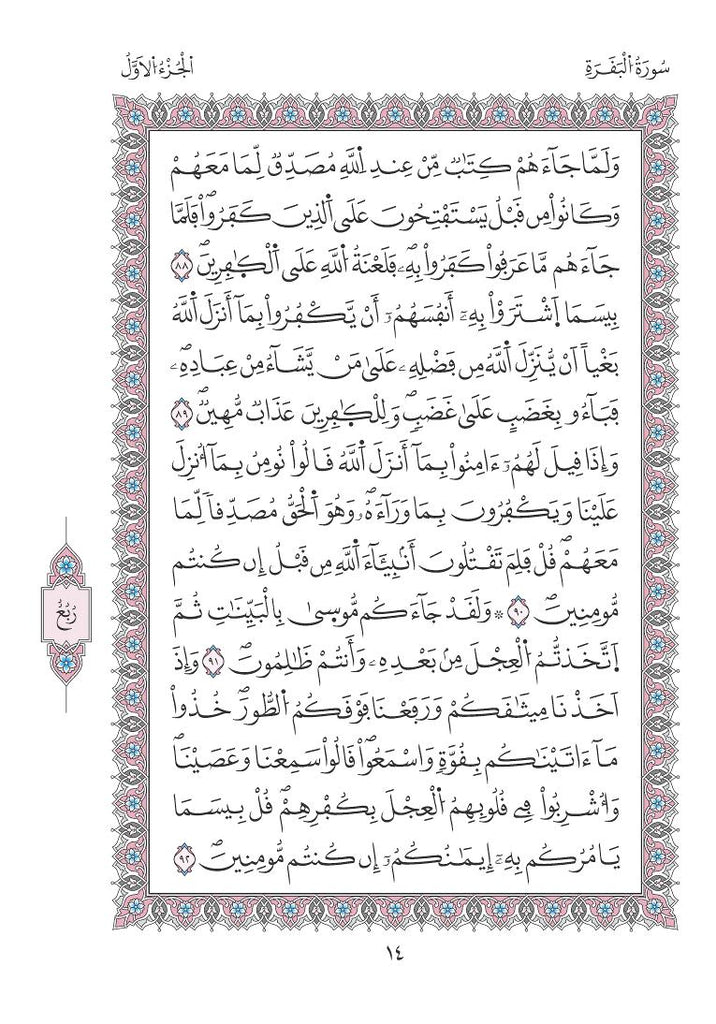 سُورَةُ الْبَقَرَةِ
الْجُزْءُ الْأَوَّلُ
وَلَمَّا جَآءَهُمْ كِتَٰبٞ مِّنْ عِندِ اِ۬للَّهِ مُصَدِّقٞ لِّمَا مَعَهُمْ
وَكَانُواْ مِن قَبْلُ يَسْتَفْتِحُونَ عَلَى اَ۬لذِينَ كَفَرُواْۖ فَلَمَّا
جَآءَهُم مَّا عَرَفُواْ كَفَرُواْ بِهِۦۖ فَلَعْنَةُ اُ۬للَّهِ عَلَى اَ۬لْكٰ۪فِرِينَۖ ٨٨
بِيسَمَا اَ۪شْتَرَوْاْ بِهِۦٓ أَنفُسَهُمُۥٓ أَنْ يَّكْفُرُواْ بِمَآ أَنزَلَ اَ۬للَّهُ
بَغْياً اَنْ يُّنَزِّلَ اَ۬للَّهُ مِن فَضْلِهِۦ عَلَىٰ مَنْ يَّشَآءُ مِنْ عِبَادِهِۦۖ
فَبَآءُو بِغَضَبٍ عَلَىٰ غَضَبٖۖ وَلِلْكٰ۪فِرِينَ عَذَابٞ مُّهِينٞۖ ٨٩
وَإِذَا قِيلَ لَهُمُۥٓ ءَامِنُواْ بِمَآ أَنزَلَ اَ۬للَّهُ قَالُواْ نُومِنُ بِمَآ أُنزِلَ
عَلَيْنَا وَيَكْفُرُونَ بِمَا وَرَآءَهُۥۖ وَهُوَ اَ۬لْحَقُّ مُصَدِّقاٗ لِّمَا
مَعَهُمْۖ قُلْ فَلِمَ تَقْتُلُونَ أَنۢبِيَٓاءَ اَ۬للَّهِ مِن قَبْلُ إِن كُنتُم
مُّومِنِينَۖ ٩٠ ۞ وَلَقَدْ جَآءَكُم مُّوس۪ىٰ بِالْبَيِّنَٰتِ ثُمَّ
اَ۪تَّخَذتُّمُ اُ۬لْعِجْلَ مِنۢ بَعْدِهِۦ وَأَنتُمْ ظَٰلِمُونَۖ ٩١ وَإِذَ
اَخَذْنَا مِيثَٰقَكُمْ وَرَفَعْنَا فَوْقَكُمُ اُ۬لطُّورَۖ خُذُواْ
مَآ ءَاتَيْنَٰكُم بِقُوَّةٖ وَاسْمَعُواْۖ قَالُواْ سَمِعْنَا وَعَصَيْنَاۖ
وَأُشْرِبُواْ فِے قُلُوبِهِمُ اُ۬لْعِجْلَ بِكُفْرِهِمْۖ قُلْ بِيسَمَا
يَامُرُكُم بِهِۦٓ إِيمَٰنُكُمُۥٓ إِن كُنتُم مُّومِنِينَۖ ٩٢
رُبُعُ
١٤